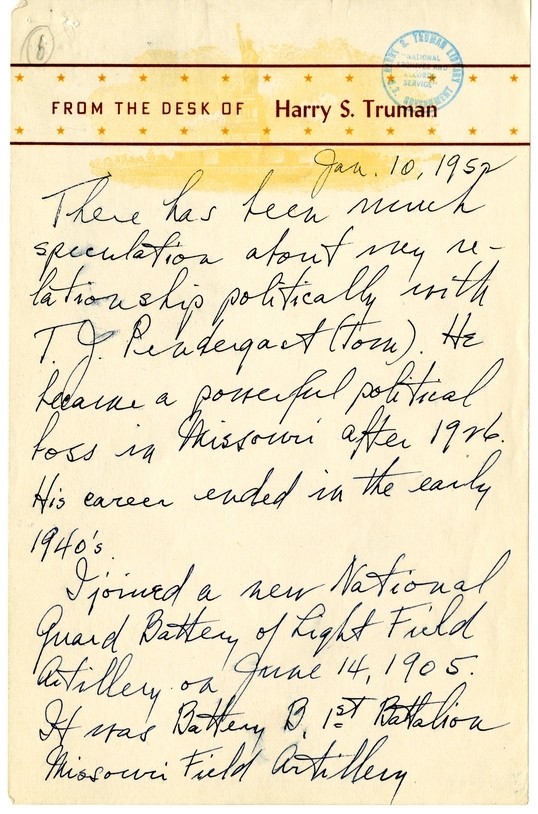 6
HARRY S. TRUMAN LIBRARY
NATIONAL
ARCHIVES AND
RECORDS
SERVICE
FROM THE DESK OF Harry S. Truman
Jan. 10, 1952
There has been much
speculation about my re-
lationship politically with
T. J. Pendergast (Tom). He
became a powerful political
boss in Missouri after 1926.
His career ended in the early
1940's.
I joined a new National
Guard Battery of Light Field
Artillery on June 14, 1905.
It was Battery B, 1st Battalion
Missouri Field Artillery